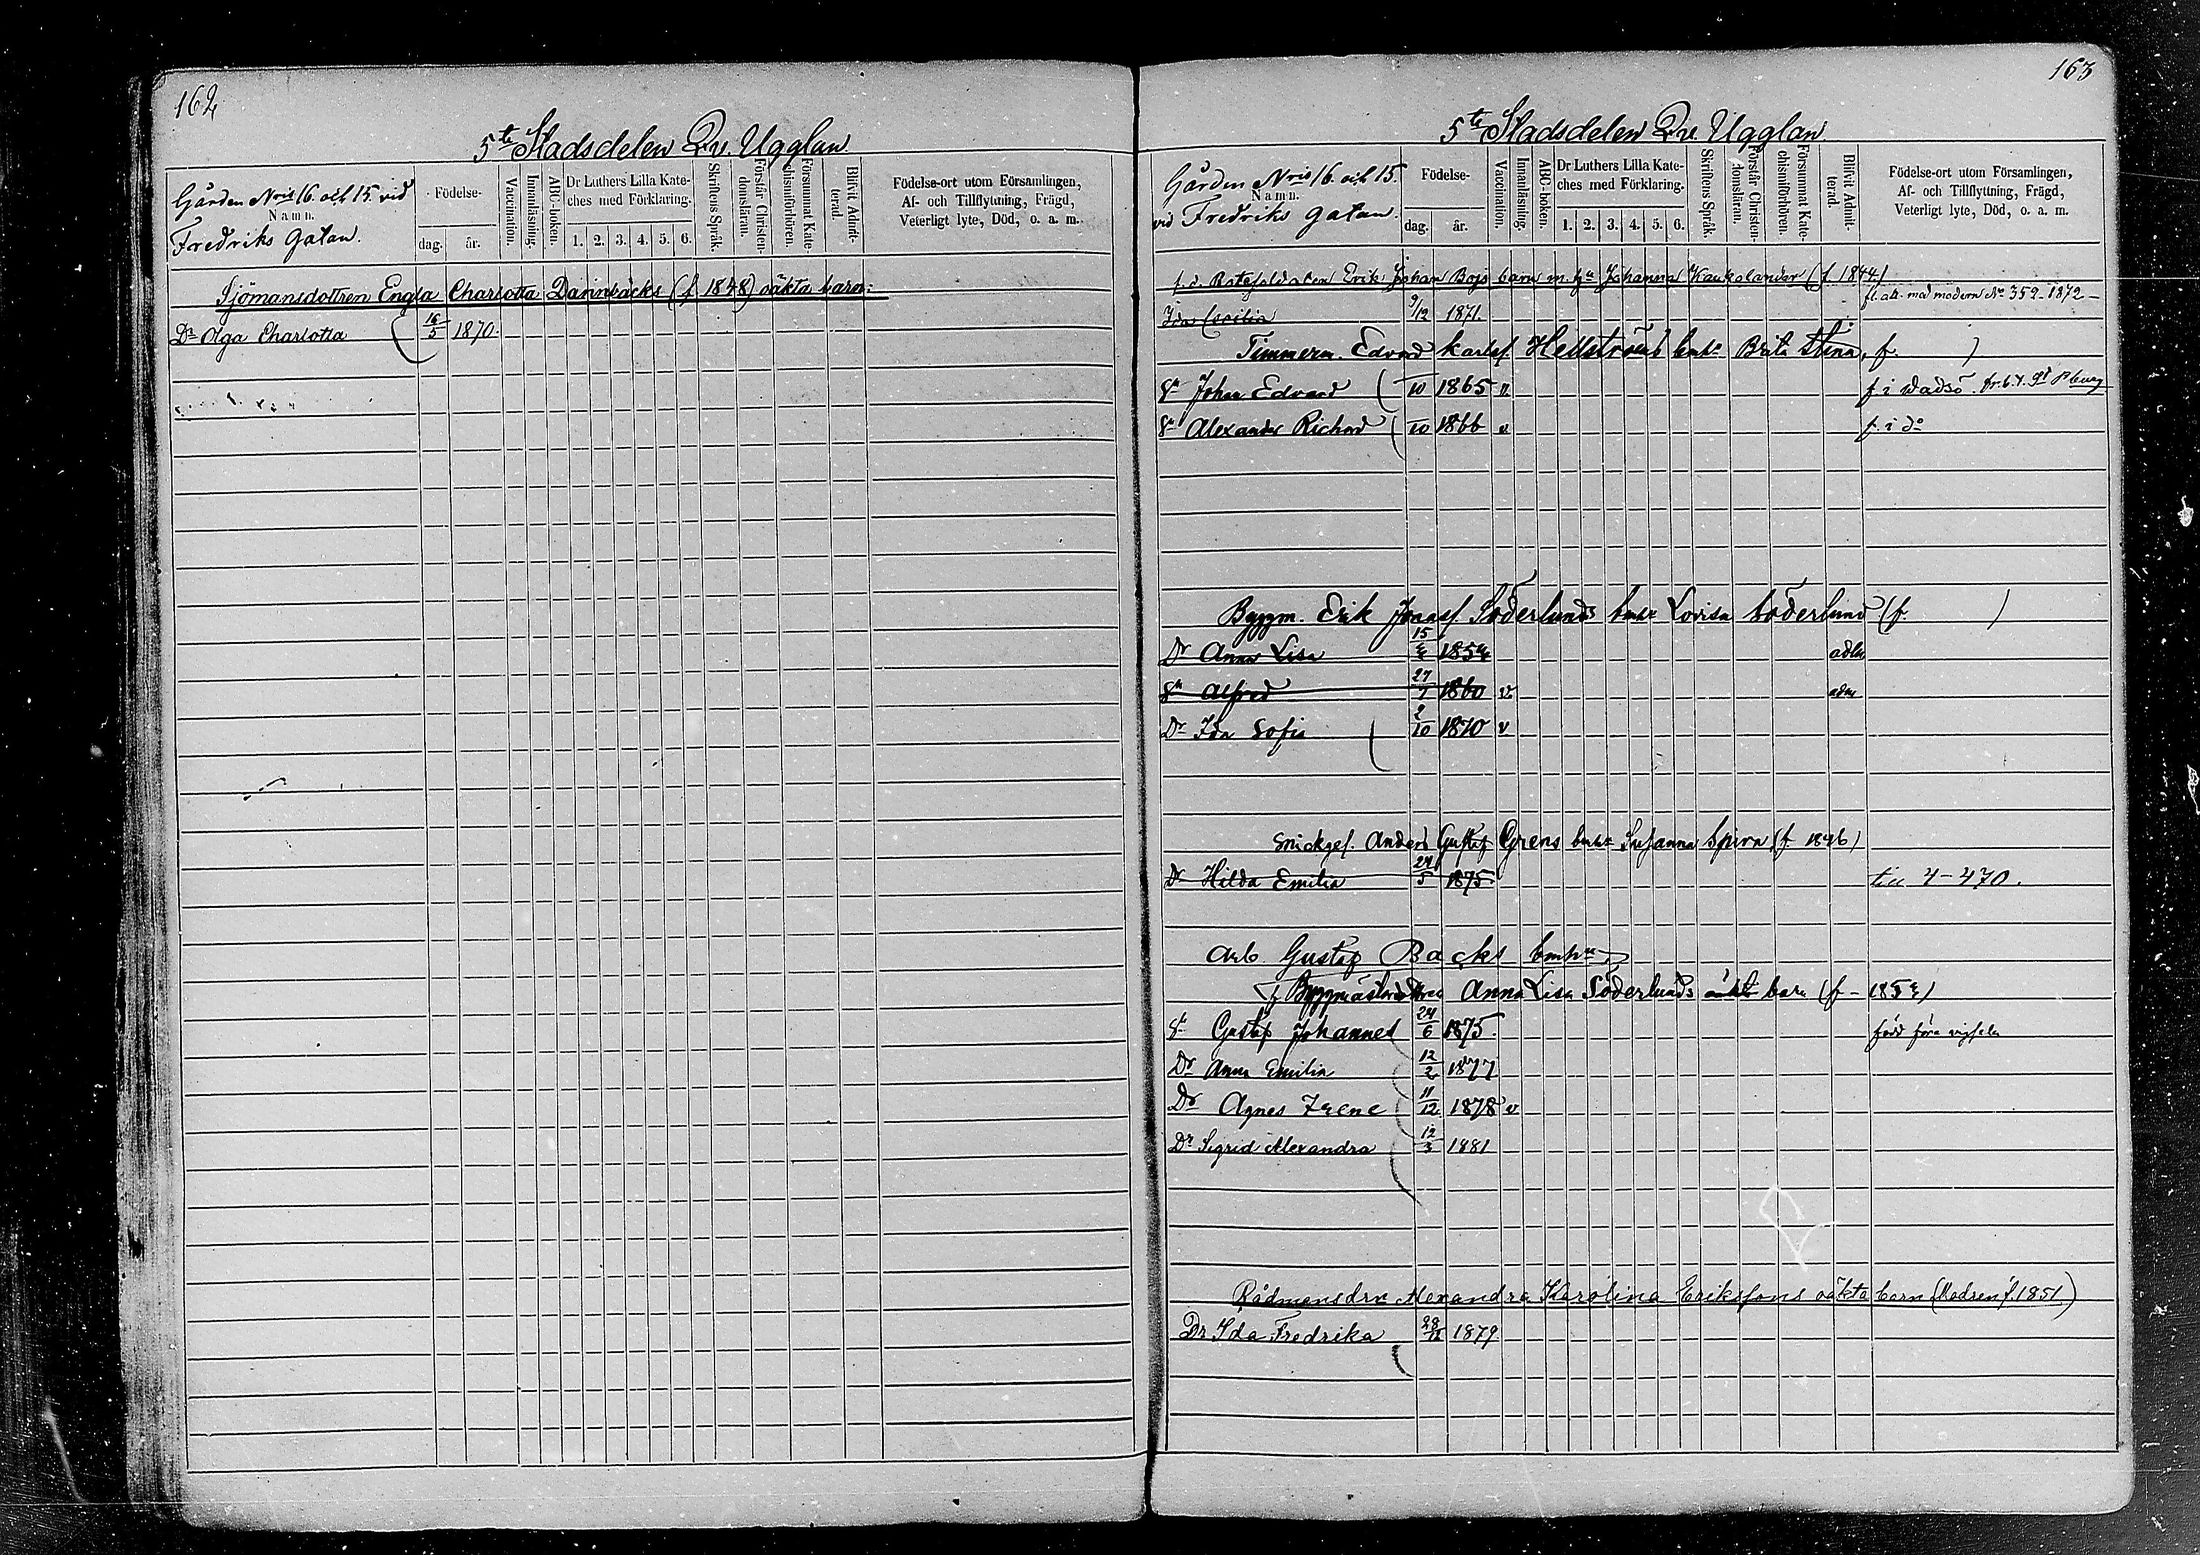 162
5te Stadsdelen Qv. Ugglan
Gården Nris 16. och 15. vid
Namn.
Fredriks Gatan.
Födelse-
dag. år.
Vaccination.
Innanläsning.
ABC-boken.
Dr Luthers Lilla Kate-
ches med Förklaring.
1. 2. 3. 4. 5. 6.
Skriftens Språk.
Förstår Christen-
domsläran.
Försummat Kate-
chismiförhören.
Blifvit Admit-
terad.
Födelse-ort utom Församlingen,
Af- och Tillflyttning, Frägd,
Veterligt lyte, Död, o. a. m.
Sjömansdottren Engla Charlotta Dannbäcks (f 1848) oäkta barn:
Dr Olga Charlotta 16/5 1870.
163
5te Stadsdelen Qv. Ugglan
Gården Nris 16. och 15.
Namn.
vid Fredriks gatan.
Födelse-
dag. år.
Vaccination.
Innanläsning.
ABC-boken.
Dr Luthers Lilla Kate-
ches med Förklaring.
1. 2. 3. 4. 5. 6.
Skriftens Språk.
Förstår Christen-
domsläran.
Försummat Kate-
chismiförhören.
Blifvit Admit-
terad.
Födelse-ort utom Församlingen,
Af- och Tillflyttning, Frägd,
Veterligt lyte, Död, o. a. m.
f.d. Erik Johan Bojs barn m. hu Johanna Kaukolander (f. 1844)
Ida Cecilia 9/12 1871. med modern No 352-1872-
Timmerm. Edvard Karlsf. Hellströms bmhu Brita Stina, f. )
Sn Johan Edvard /10 1865 v. f. i Wadsö.
Sn Alexander Richard /10 1866 v f. i do
Byggm. Erik Jonasf. Söderlunds bmhu Lovisa Söderlund (f. )
Dr Anna Lisa 15/4 1854 adm
Sn Alfred 27/7 1860 v adm
Dr Ida Sofia 2/10 1870 v
Snickgef. Anders Gustaf Grens bmhu Susanna Spira (f 1846)
Dr Hilda Emilia 24/5 1875. till 4-470.
Arb. Gustaf Backs bmhu
f. Byggmästaredttren Anna Lisa Söderlunds oäkta barn (f - 1854)
Sn Gustaf Johannes 24/6 1875. född före vigseln
Dr Anna Emilia 12/2 1877
Dr Agnes Irene 11/12 1878 v
Dr Sigrid Alexandra 12/3 1881
Rådmansdrn Alexandra Karolina Eriksfons oäkta barn (Modren f. 1851)
Dr Ida Fredrika 28/12 1879